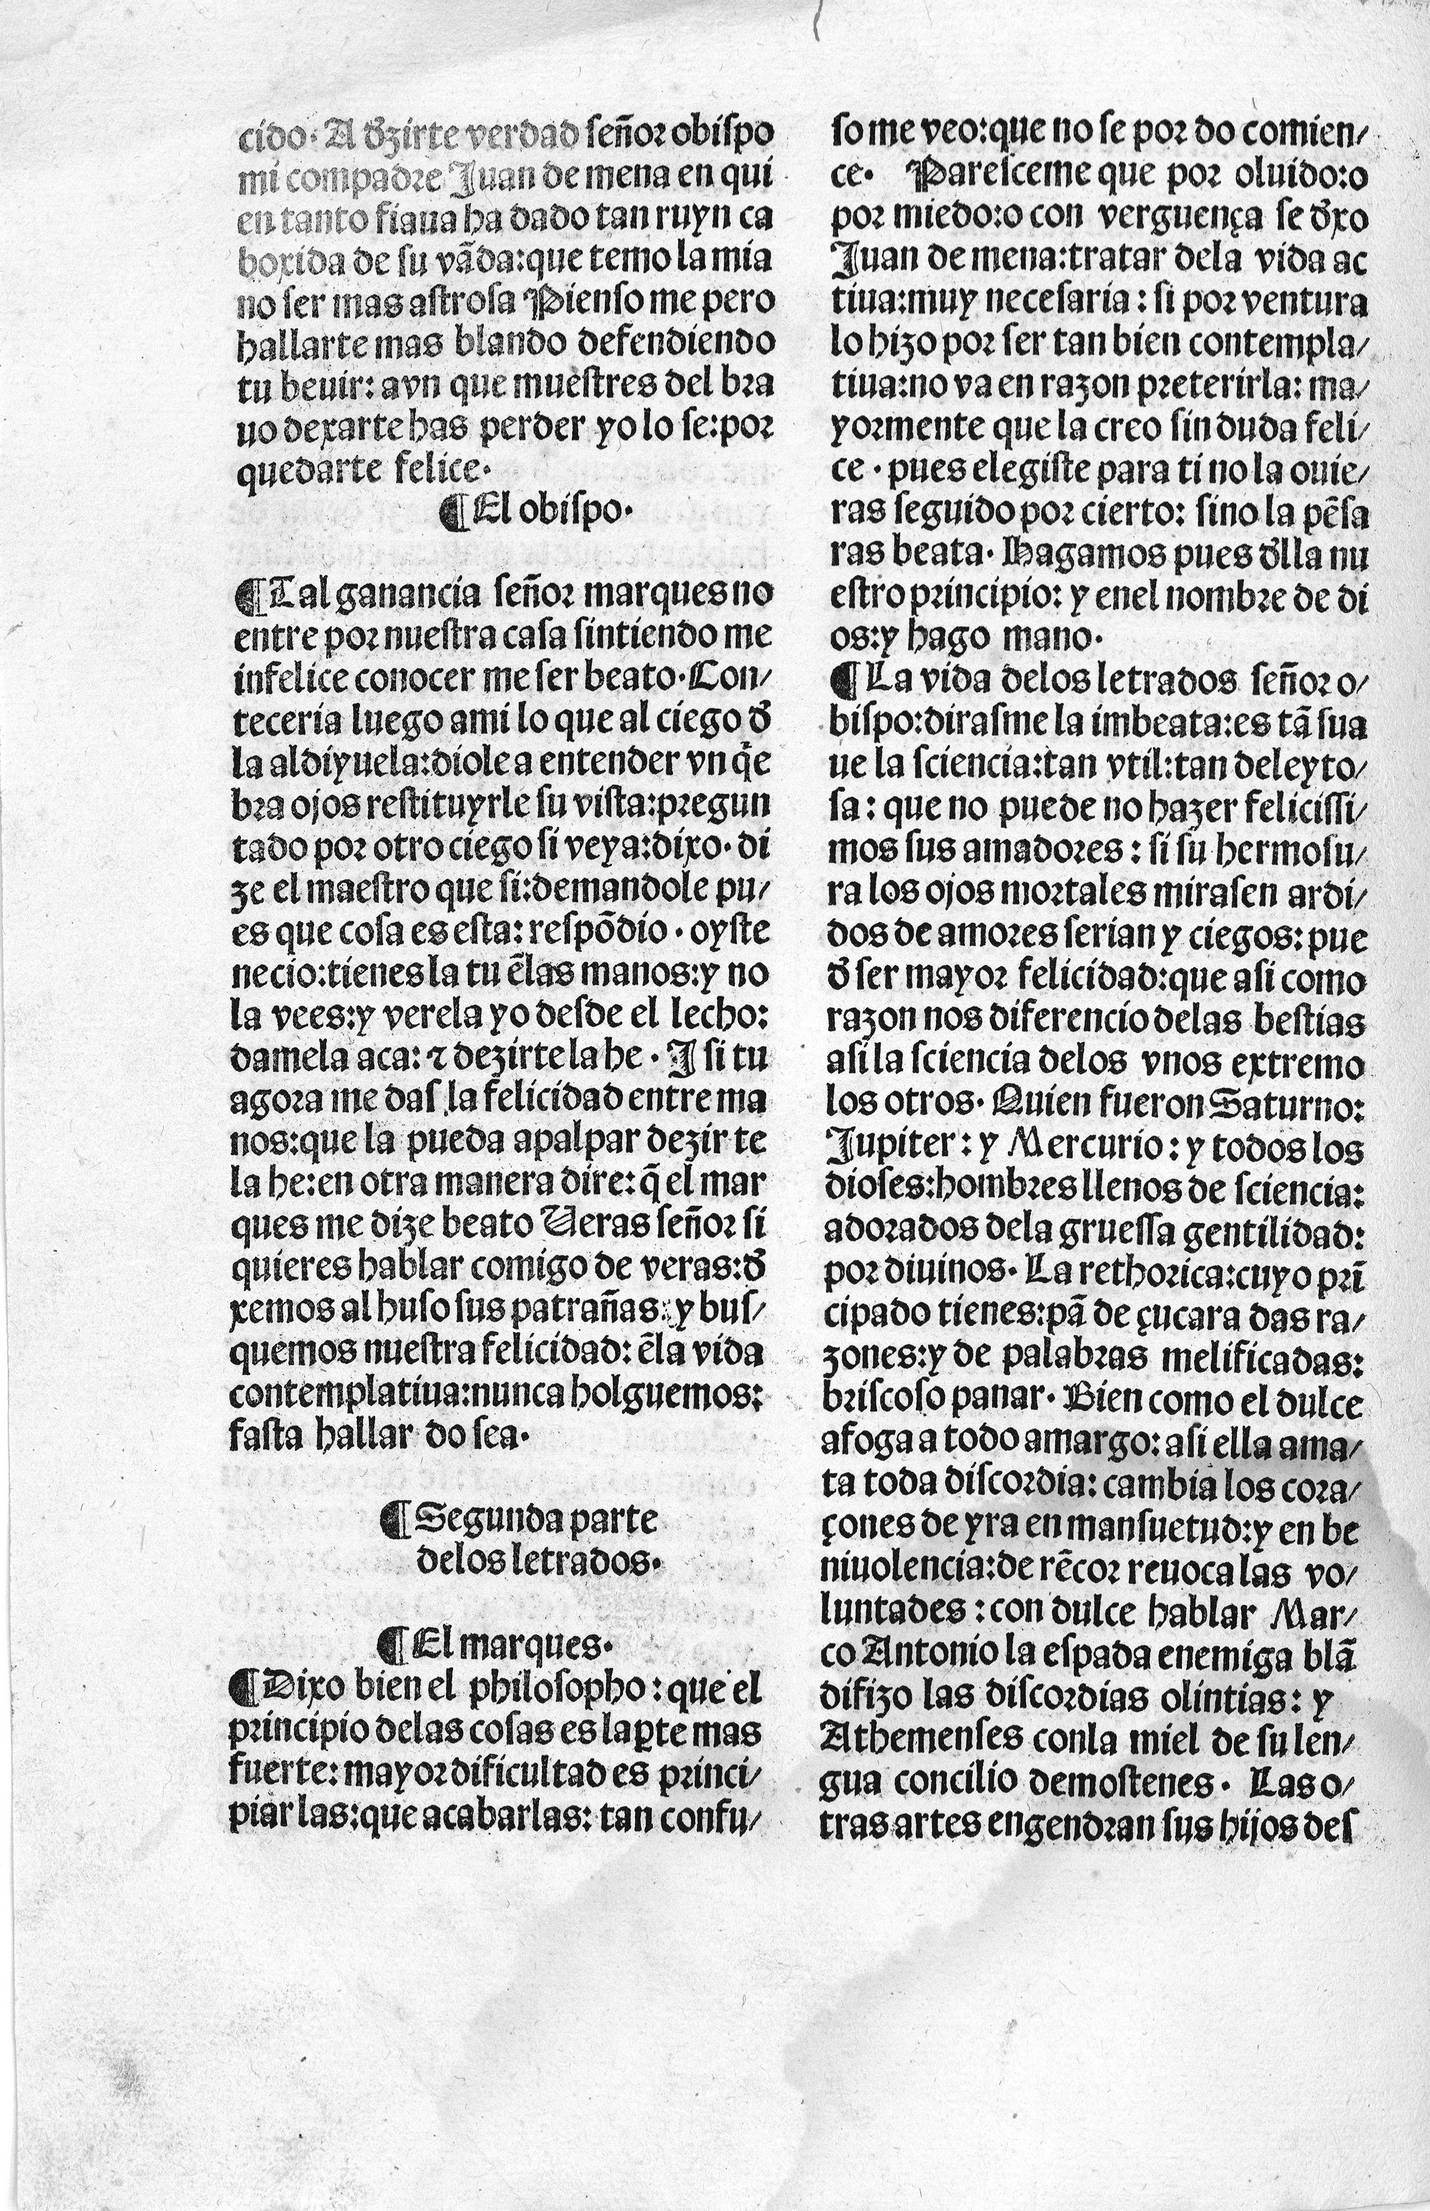 cido. A d̄zirte verdad señor obispo
mi compadre Juan de mena en qui
en tanto fiaua ha dado tan ruyn ca
boxida de su vãda:que temo la mia
no ser mas astrosa Pienso me pero
hallarte mas blando defendiendo
tu beuir: avn que muestres del bra
uo dexarte has perder yo lo se:por
quedarte felice.
¶El obispo.
¶Tal ganancia señor marques no
entre por nuestra casa sintiendo me
infelice conocer me ser beato. Con/
teceria luego ami lo que al ciego d̄
la aldiyuela:diole a entender vn q̄e
bra ojos restituyrle su vista:pregun
tado por otro ciego si veya:dixo. di
ze el maestro que si:demandole pu/
es que cosa es esta: respõdio . oyste
necio:tienes la tu ẽlas manos:y no
la vees:y verela yo desde el lecho:
damela aca: ⁊ dezirte la he . I si tu
agora me das la felicidad entre ma
nos:que la pueda apalpar dezir te
la he:en otra manera dire: q̃ el mar
ques me dize beato Ueras señor si
quieres hablar comigo de veras:d̄
xemos al huso sus patrañas: y bus/
quemos nuestra felicidad: ẽla vida
contemplatiua:nunca holguemos:
fasta hallar do sea.
¶Segunda parte
delos letrados.
¶El marques.
¶Dixo bien el philosopho : que el
principio delas cosas es la ꝑte mas
fuerte: mayor dificultad es princi/
piar las:que acabarlas: tan confu/
so me veo:que no se por do comien/
ce. Paresceme que por oluido:o
por miedo:o con verguença se d̄xo
Juan de mena:tratar dela vida ac
tiua:muy necesaria : si por ventura
lo hizo por ser tan bien contempla/
tiua:no va en razon preterirla: ma/
yormente que la creo sin duda feli/
ce . pues elegiste para ti no la ouie/
ras seguido por cierto: sino la pẽsa
ras beata. Hagamos pues d̄lla nu
estro principio: y enel nombre de di
os:y hago mano.
¶La vida delos letrados señor o/
bispo:dirasme la imbeata:es tã sua
ue la sciencia:tan vtil:tan deleyto/
sa: que no puede no hazer felicissi/
mos sus amadores : si su hermosu/
ra los ojos mortales mirasen ardi/
dos de amores serian y ciegos: pue
d̄ ser mayor felicidad:que asi como
razon nos diferencio delas bestias
asi la sciencia delos vnos extremo
los otros. Quien fueron Saturno:
Jupiter : y Mercurio : y todos los
dioses:hombres llenos de sciencia:
adorados dela gruessa gentilidad:
por diuinos. La rethorica:cuyo prĩ
cipado tienes:pã de çucara das ra/
zones:y de palabras melificadas:
briscoso panar. Bien como el dulce
afoga a todo amargo: asi ella ama/
ta toda discordia: cambia los cora/
çones de yra en mansuetud:y en be
niuolencia:de rẽcor reuoca las vo/
luntades : con dulce hablar Mar/
co Antonio la espada enemiga blã
difizo las discordias olintias: y
Athemenses conla miel de su len/
gua concilio demostenes. Las o/
tras artes engendran sus hijos des